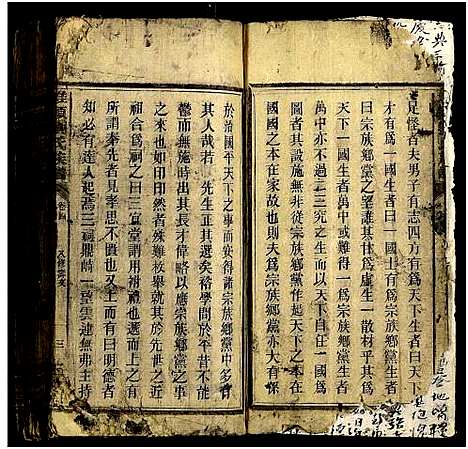 足怪者夫男子有志四方有爲天下生者曰天下
才有爲一國生者曰一國士有爲宗族鄉黨生者
曰宗族鄉黨之望誰其甘爲虛生一散材乎其爲
天下一國生者萬中或難得一爲宗族鄉黨生者
萬中亦不過二三究之生以天下自任一國爲
圖者其設施無非從宗族鄉黨作起天下之本在
國國之本在家故也則夫爲宗族鄉黨亦大有保
於治國平天下之事而安得諸宗族鄉黨中多有
其人哉若　先生正其選矣裕學問於平昔不能
鬱而無施時出其長才偉略以應宗族鄉黨之事
之來也如印印然者殊難枚舉就其於先世之近
祖合爲祠之曰三宜堂謂用祔禮也從而上之亦
所謂奉先者見孝思不匱也又上而有曰明德者
知必有達人起焉三祠鼎峙一望雲連無弗主持
三